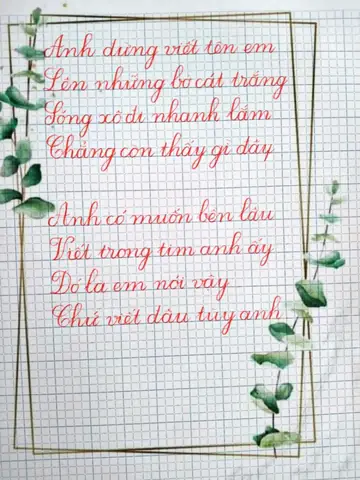 Anh đừng viết tên em
Lên những bờ cát trắng
Sóng xô đi nhanh lắm
Chẳng còn thấy gì đấy

Anh có muốn bền lâu
Viết trong tim anh ấy
Đó là em nói vậy
Chứ viết đâu tùy anh